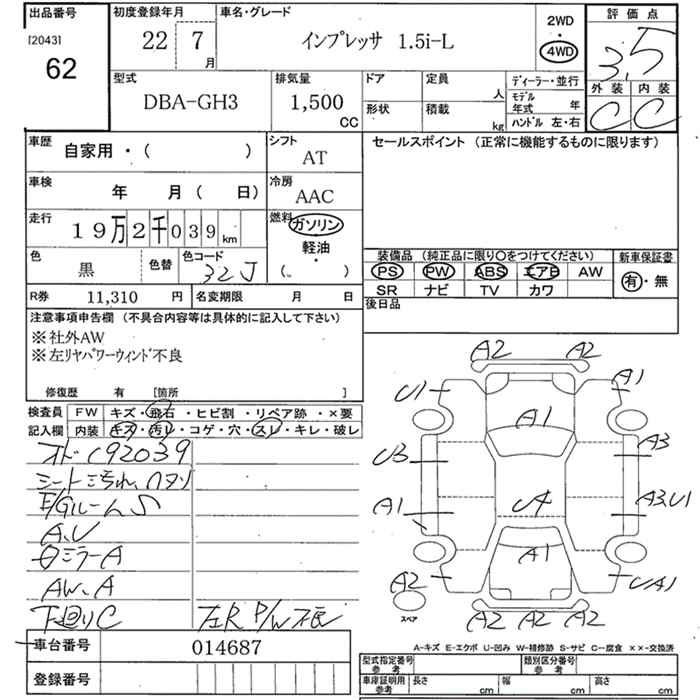 出品番号
[2043]
62
初度登録年月
22 7
月
車名・グレード
インプレッサ 1.5i-L
2WD
・
4WD
評価点
3.5
外装 内装
C C
型式
DBA-GH3
排気量
1,500
CC
ドア
形状
定員
人
積載
kg
ディーラー・並行
モデル
年式 年
ハンドル 左・右
車歴
自家用・( )
シフト
AT
車検
年 月( 日)
冷房
AAC
走行
19万2千039 km
燃料
ガソリン
軽油
・
( )
色
黒
色替
色コード
32J
R券 11,310 円
名変期限 月 日
セールスポイント (正常に機能するものに限ります)
装備品 (純正品に限り○をつけてください)
PS PW ABS エアB AW
SR ナビ TV カワ
新車保証書
有・無
後日品
注意事項申告欄 (不具合内容等は具体的に記入して下さい)
※社外AW
※左リヤパワーウィンド不良
修復歴 有 [箇所 ]
検査員
記入欄
FW キズ・飛石・ヒビ割・リペア跡・×要
内装 キズ・汚レ・コゲ・穴・スレ・キレ・破レ
オドC92039
シート汚れ、
E/Gルーム S
A.U
ミラーA
AW、A
下廻りC
左R P/W不良
車台番号 014687
登録番号
A2 A2
U1 A1
A1
U3 A3
A1 A3,U1
A1
A2 UA1
スペア
A2 A2 A2
A-キズ E-エクボ U-凹み W-補修跡 S-サビ C-腐食 ××-交換済
型式指定番号
参考
類別区分番号
参考
車庫証明用
参考
長さ cm 幅 cm 高さ cm